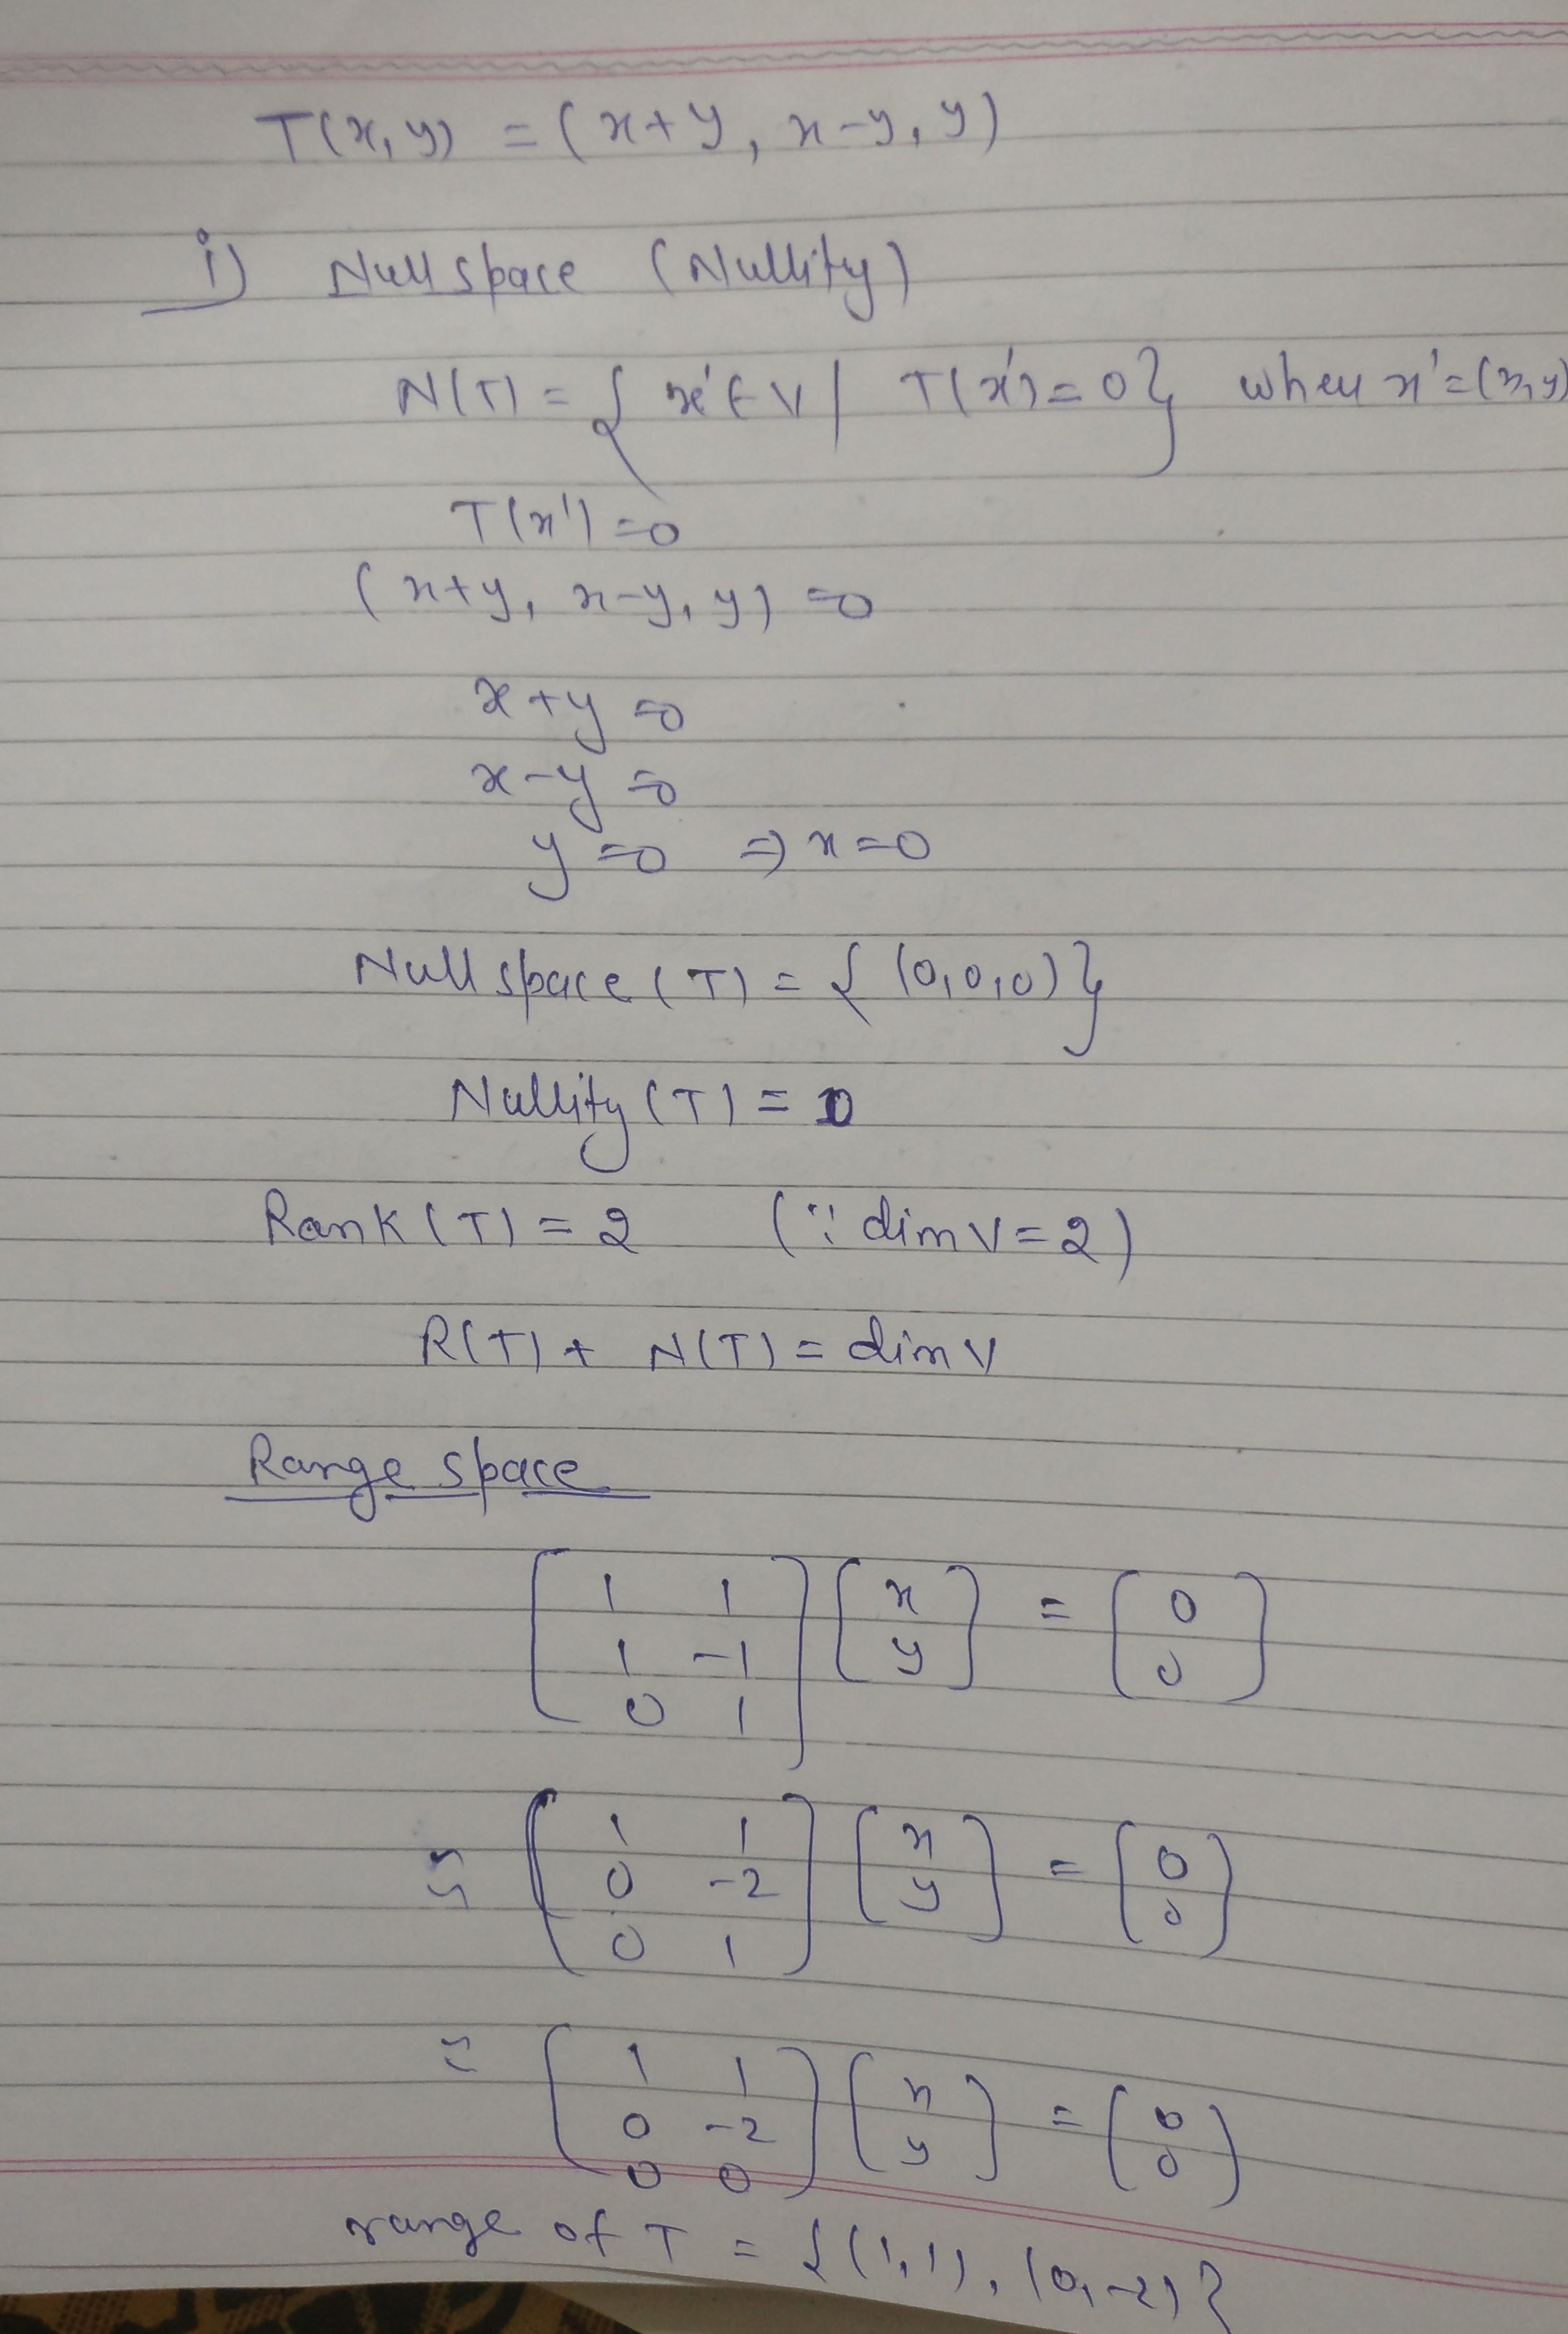 T(x, y) = (x+y, x-y, y)
i) Null space (Nullity)
N(T) = { x' ∈ V | T(x') = 0 } when x' = (x, y)
T(x') = 0
(x+y, x-y, y) = 0
x+y = 0
x-y = 0
y = 0 ⇒ x = 0
Null space (T) = { (0, 0, 0) }
Nullity (T) = 0
Rank (T) = 2 (∵ dim V = 2)
R(T) + N(T) = dim V
Range space
[1 1; 1 -1; 0 1] [x; y] = [0; 0]
≈ [1 1; 0 -2; 0 1] [x; y] = [0; 0]
≈ [1 1; 0 -2; 0 0] [x; y] = [0; 0]
range of T = { (1, 1), (0, -2) }